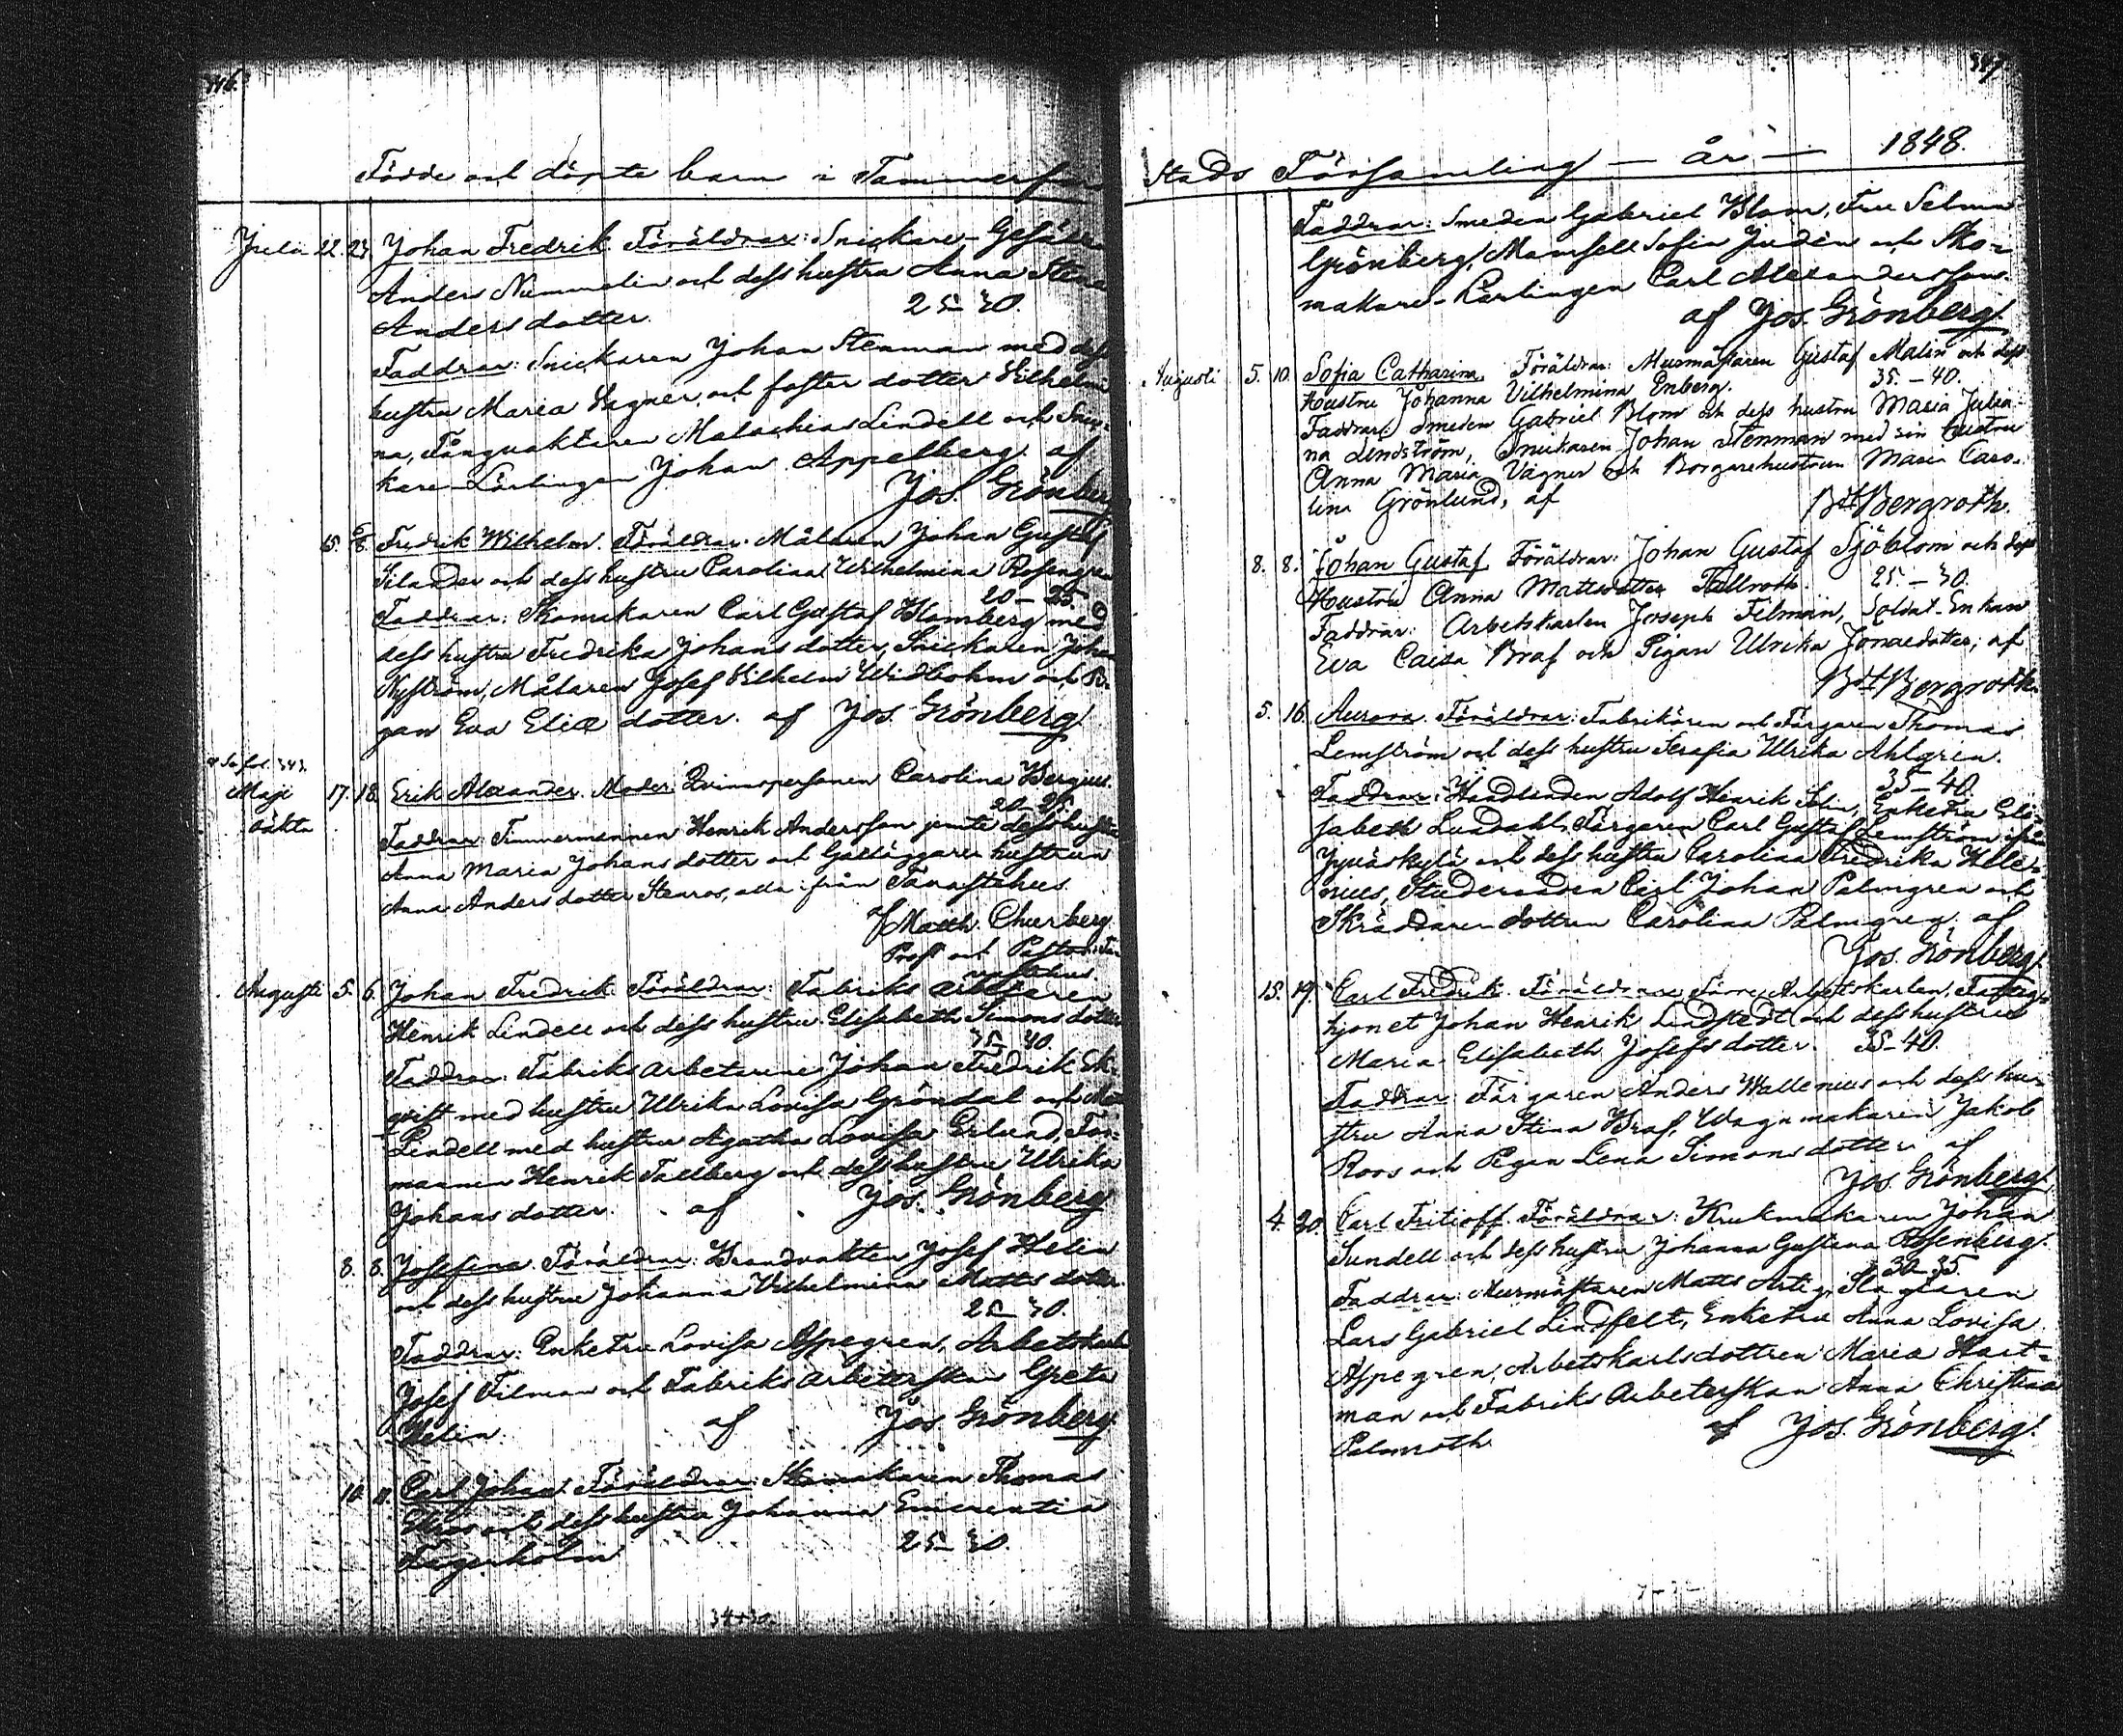 346.
Födde och döpte barn i Tammerfors
Julii 22. 23. Johan Fredrik. Föräldrar: Snickare-Gesällen
Anders Nummelin och dess hustru Anna Stina
Andersdotter. 25–30.
Faddrar: Snickaren Johan Stenman med dess
hustru Maria Vagner, och foster dotter Vilhelmi-
na, Fångvaktaren Malachias Lindell och Snic-
kare-Lärlingen Johan Appelberg. af
Jos. Grönberg
15. Fredrik Wilhelm. Föräldrar: Målaren Johan Gustaf
Silander och dess hustru Carolina Wilhelmina Rosengren
20–25.
Faddrar: Skomakaren Carl Gustaf Blomberg med
dess hustru Fredrika Johansdotter, Snickaren Johan
Nyström, Målaren Josef Vilhelm Widbohm och Pi-
gan Eva Eliædotter. af Jos. Grönberg.
Se fol. 343.
Maji 17. 18. Erik Alexander. Moder: Qvinnspersonen Carolina Bergius.
oäkta 20–25.
Faddrar: Timmermannen Henrik Andersson jemte dess hustru
Anna Maria Johansdotter och hustrun
Anna Andersdotter Stenros, alla från Tavastehus.
af Matth. Churberg
Prost och Pastor i Ta-
vastehus
Augusti 5. 6. Johan Fredrik. Föräldrar: Fabriks arbetaren
Henrik Lindell och dess hustru Elisabeth Simonsdotter
35–40.
Faddrar: Fabriks arbetarne Johan Fredrik Ek-
qvist med hustru Ulrika Lovisa Gröndal och
Lindell med hustru Agatha Lovisa Erlund, For-
mannen Henrik Tallberg och dess hustru Ulrika
Johansdotter. af Jos. Grönberg
8. 8. Josefina. Föräldrar: Brandvakten Josef Helin
och dess hustru Johanna Vilhelmina Mattsdotter.
25–30.
Faddrar: Enkefru Lovisa Aspegren, Arbetskarlen
Josef Filman och Fabriks arbeterskan Greta
Helin. af Jos. Grönberg
10. 11. Carl Johan. Föräldrar: Skomakaren Thomas
och dess hustru Johanna Emerentia
Fagerholm 25–30.
347.
Stads Församling — år — 1848.
Faddrar: Smeden Gabriel Blom, Fru Selma
Grönberg, Mamsell Sofia Judén och Sko-
makare-Lärlingen Carl Alexandersson.
af Jos. Grönberg.
Augusti 5. 10. Sofia Catharina. Föräldrar: Murmästaren Gustaf Malin och dess
Hustru Johanna Vilhelmina Enberg. 35.–40.
Faddrar: Smeden Gabriel Blom och dess hustru Maria Julia-
na Lindström, Snickaren Johan Stenman med sin hustru
Anna Maria Vagner och Borgarehustrun Maria Caro-
lina Grönlund, af
Bdt Bergroth.
8. 8. Johan Gustaf. Föräldrar: Johan Gustaf Sjöblom och dess
Hustru Anna Mattsdotter Tallroth. 25.–30.
Faddrar: Arbetskarlen Joseph Filman, Soldat-Enkan
Eva Caisa Braf och Pigan Ulrika Jonædotter; af
Bdt Bergroth.
5. 16. Aurora. Föräldrar: Fabrikören och Färgaren Thomas
Lemström och dess hustru Serafia Ulrika Ahlgren.
35–40.
Faddrar: Handlanden Adolf Henrik Solin, Enkefru Eli-
sabeth Lundahl, Färgaren Carl Gustaf Lemström ifrån
Jyväskylä och dess hustru Carolina Fredrika Hele-
nius, Studeranden Carl Johan Palmgren och
Skräddaren dottren Carolina Palmgren. af
Jos. Grönberg.
15. 19. Carl Fredrik. Föräldrar: Förre Arbetskarlen, Fattig-
hjonet Johan Henrik Lindstedt och dess hustru
Maria Elisabeth Josefsdotter. 35–40.
Faddrar: Färgaren Anders Wallenius och dess hu-
stru Anna Stina Braf, Wagnmakaren Jakob
Roos och Pigan Lena Simonsdotter. af
Jos. Grönberg.
4. 20. Carl Fritioff. Föräldrar: Krukmakaren Johan
Sundell och dess hustru Johanna Gustava Rosenberg.
30–35.
Faddrar: Murmästaren Matts Artig, Slagtaren
Lars Gabriel Lindfelt, Enkefru Anna Lovisa
Aspegren, Arbetskarlsdottren Maria Hart-
man och Fabriks Arbeterskan Anna Christina
Palmroth. af Jos. Grönberg.